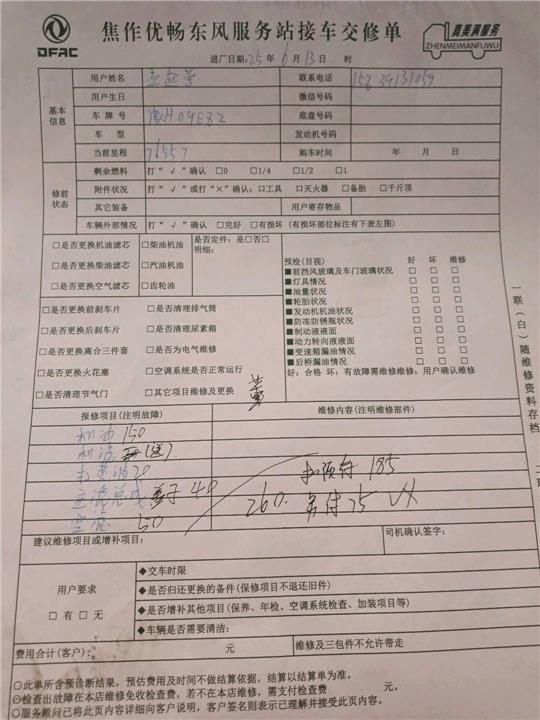 DFAC
焦作优畅东风服务站接车交修单
真美满服务
ZHENMEIMANFUWU
进厂日期:25 年 6 月 13 日 时
基本信息
用户姓名
联系电话
用户生日 微信号码
车牌号 底盘号码
车型 发动机号码
当前里程 76557 购车时间 年 月 日
修前状态
剩余燃料 打“√”确认 □0 □1/4 □1/2 □1
附件状况 打“√”或打“×”确认:□工具 □灭火器 □备胎 □千斤顶
其它装备 用户寄存物品
车辆外部情况 打“√”确认 □完好 □有损坏(有损坏部位标注有下表左图)
□是否更换机油滤芯 □柴油机油 是否定件:是□否□
明细:
□是否更换柴油滤芯 □汽油机油
□是否更换空气滤芯 □齿轮油
预检(目视) 好 坏 维修
■前挡风玻璃及车门玻璃状况 □ □ □
■灯具情况 □ □ □
■油量状况 □ □ □
■轮胎状况 □ □ □
■发动机机油液面 □ □ □
■防冻防锈瓶状况 □ □ □
■制动液液面 □ □ □
■动力转向液液面 □ □ □
■变速箱漏油情况 □ □ □
■后桥漏油情况 □ □ □
好:合格 坏:有故障需维修维修:用户确认维修
□是否更换前刹车片 □是否清理排气筒
□是否更换后刹车片 □是否清理尿素箱
□是否更换离合三件套 □是否为电气维修
□是否更换火花塞 □空调系统是否正常运行
□是否清理节气门 □其它项目维修及更换
报修项目(注明故障) 维修内容(注明维修部件)
机油 150
机滤 (送)
打黄油 20
40
空滤 50
扣预存 185
260. 另付 75
建议维修项目或增补项目:
司机确认签字:
用户要求
□有 □无
◆交车时限
◆是否归还更换的备件(保修项目不退还旧件)
◆是否增补其他项目(保养、年检、空调系统检查、加装项目等)
◆车辆是否需要清洁:
费用合计(客户): 元 维修及三包件不允许带走
○此单所含预诊断结果,预估费用及时间不做结算依据,结算以结算单为准。
○检查出故障在本店维修免收检查费,若不在本店维修,需支付检查费 元。
○服务顾问已将此页内容详细向客户说明,客户签名则表示已理解并接受此页内容。
一联(白)随维修资料存档